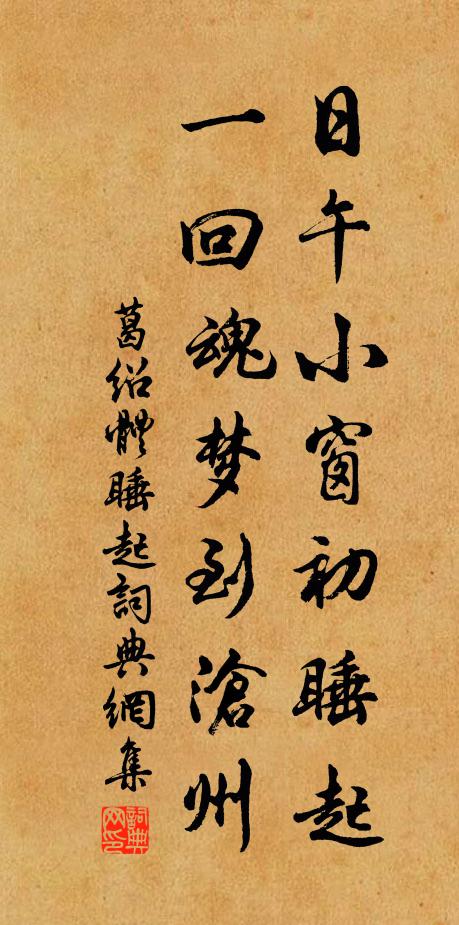 日午小窗初睡起
一回魂梦到滄州
葛绍體睡起詞典網集
詞典网印